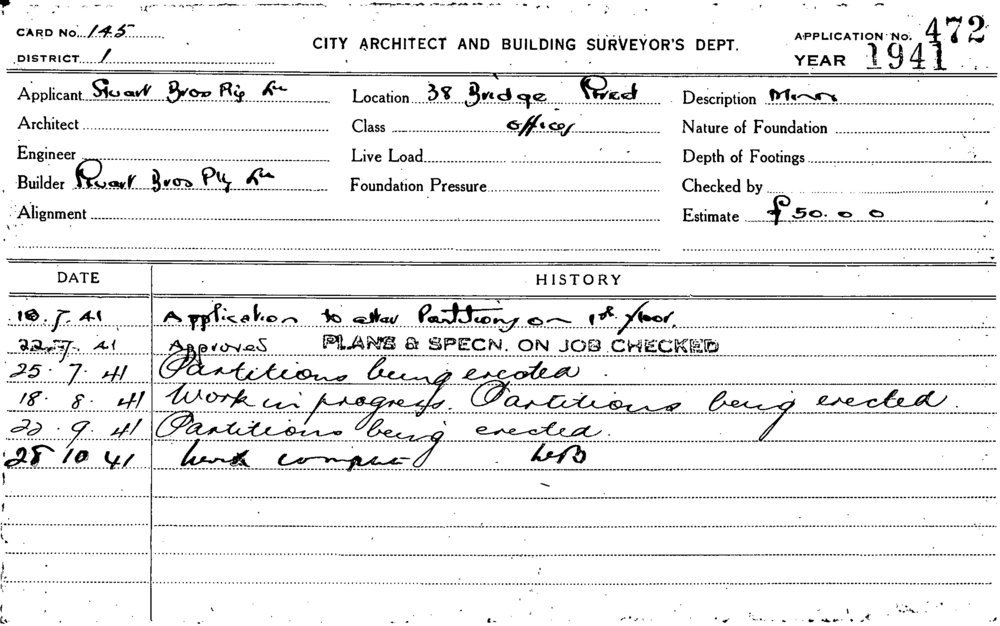 CARD No. 145
DISTRICT 1
CITY ARCHITECT AND BUILDING SURVEYOR'S DEPT.
APPLICATION No. 472
YEAR 1941
Applicant Stuart Bros Pty Ltd
Location 38 Bridge Street
Description Minor
Architect
Class offices
Nature of Foundation
Engineer
Live Load
Depth of Footings
Builder Stuart Bros Pty Ltd
Foundation Pressure
Checked by
Alignment
Estimate £50.0 0
DATE HISTORY
18.7.41 Application to alter Partitions on 1st floor.
22.7.41 Approved PLANS & SPECN. ON JOB CHECKED
25.7.41 Partitions being erected.
18.8.41 Work in progress. Partitions being erected.
22.9.41 Partitions being erected.
28 10 41 Work complete